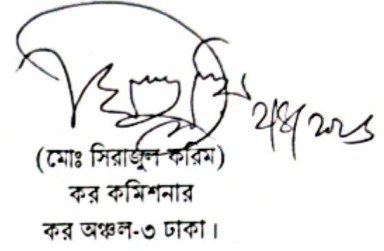 (মোঃ সিরাজুল করিম)
কর কমিশনার
কর অঞ্চল-৩ ঢাকা।